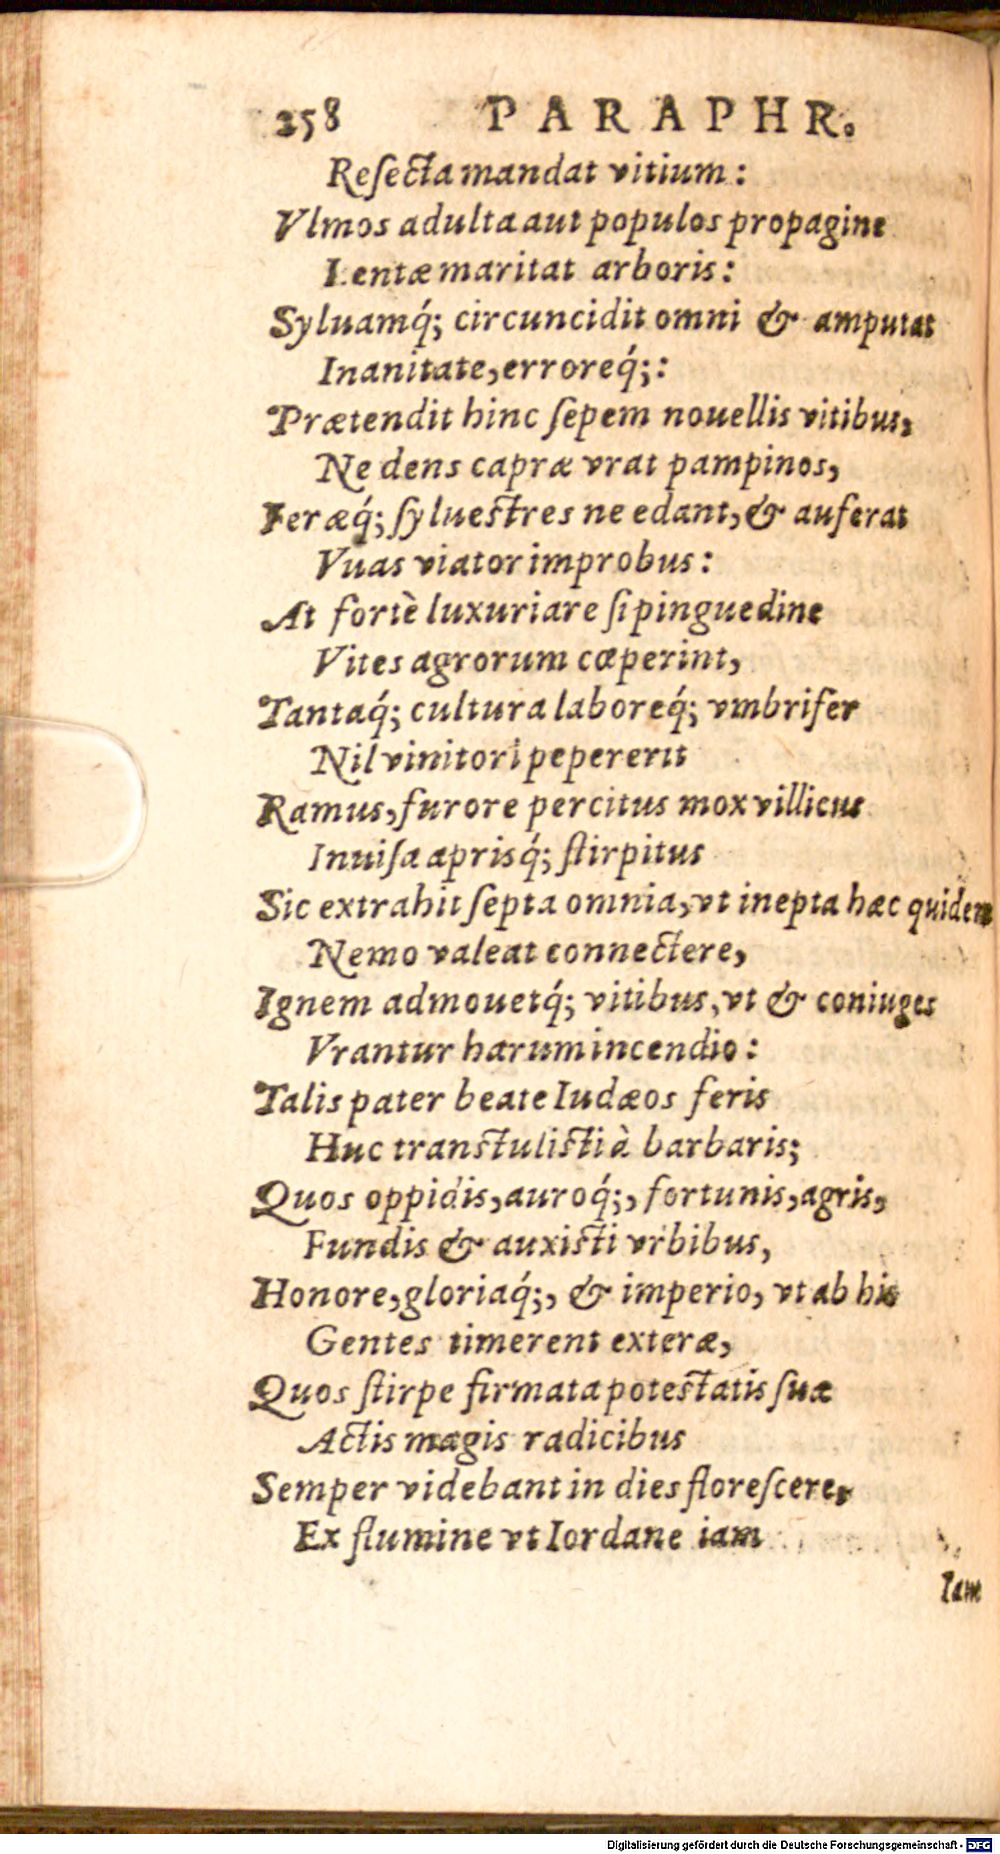 258 PARAPHR.
Reſecta mandat vitium:
Vlmos adulta aut populos propagine
Lentæ maritat arboris:
Syluamq́; circuncidit omni & amputat
Inanitate, erroreq́;:
Prætendit hinc ſepem nouellis vitibus,
Ne dens capræ vrat pampinos,
Feræq́; ſylueſtres ne edant, & auferat
Vuas viator improbus:
At fortè luxuriare ſi pinguedine
Vites agrorum cœperint,
Tantaq́; cultura laboreq́; vmbrifer
Nil vinitori pepererit
Ramus, furore percitus mox villicus
Inuiſa aprisq́; ſtirpitus
Sic extrahit ſepta omnia, vt inepta hæc quidem
Nemo valeat connectere,
Ignem admouetq́; vitibus, vt & coniuges
Vrantur harum incendio:
Talis pater beate Iudæos feris
Huc tranſtuliſti à barbaris;
Quos oppidis, auroq́;, fortunis, agris,
Fundis & auxiſti vrbibus,
Honore, gloriaq́;, & imperio, vt ab his
Gentes timerent exteræ,
Quos ſtirpe firmata poteſtatis ſuæ
Actis magis radicibus
Semper videbant in dies floreſcere,
Ex flumine vt Iordane iam
Iam
Digitalisierung gefördert durch die Deutsche Forschungsgemeinschaft - DFG